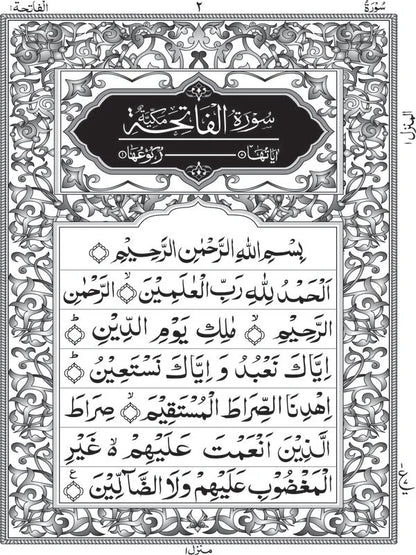 سُوْرَةُ ٢ الْفَاتِحَة ١
سُوْرَةُ الْفَاتِحَةِ مَكِّيَّةٌ
اٰيَاتُهَا رُكُوْعُهَا
المنزل ١
بِسْمِ اللّٰهِ الرَّحْمٰنِ الرَّحِيْمِ
اَلْحَمْدُ لِلّٰهِ رَبِّ الْعٰلَمِيْنَ ۙ الرَّحْمٰنِ
الرَّحِيْمِ ۙ مٰلِكِ يَوْمِ الدِّيْنِ ؕ
اِيَّاكَ نَعْبُدُ وَ اِيَّاكَ نَسْتَعِيْنُ ؕ
اِهْدِنَا الصِّرَاطَ الْمُسْتَقِيْمَ ۙ صِرَاطَ
الَّذِيْنَ اَنْعَمْتَ عَلَيْهِمْ ۙ غَيْرِ
الْمَغْضُوْبِ عَلَيْهِمْ وَلَا الضَّآلِّيْنَ ع
منزل ١